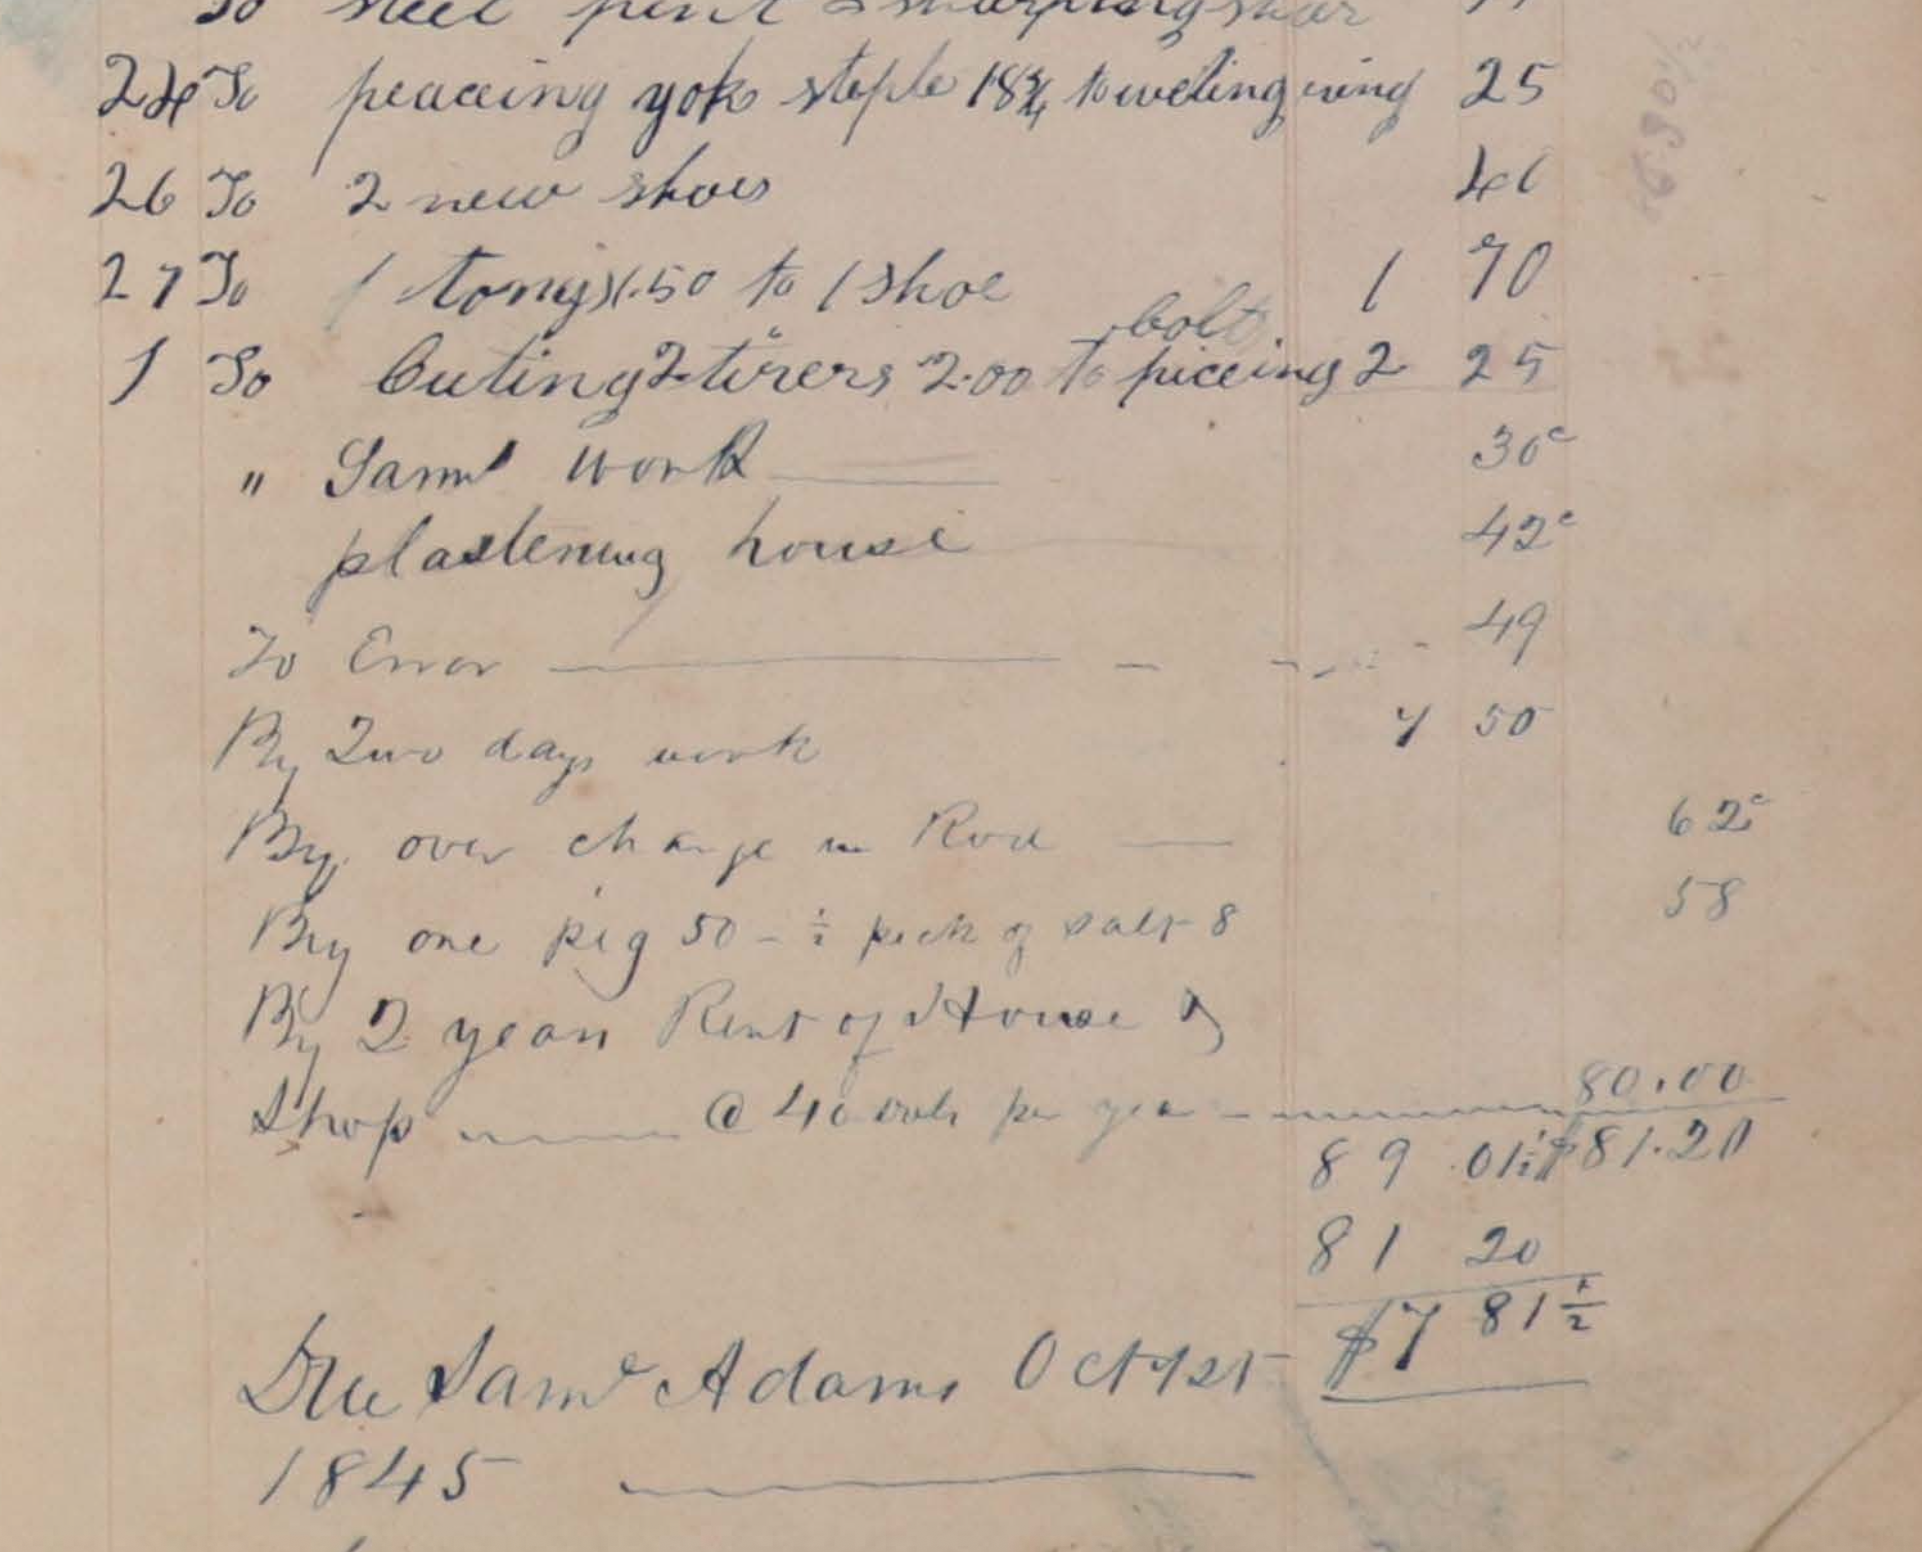 To steel
24 To peaceing yok staple 18¾ to weling ring 25
26 To 2 new shoes 40
27 To 1 tongs 1.50 to 1 shoe 1 70
bolt
1 To Cuting 2 tirers 2.00 To pieceing 2 25
" Saml work 30c
plastening house 42c
To Error 49
By Two days work 1 50
By over change in Rod 62c
By one pig 50 - ½ peck of salt 8 58
By 2 years Rent of House &
Shop @ 40 dols per year 80.00
89 .01½ $81.20
81 20
$7 81½
Due Saml Adams Oct 1st
1845